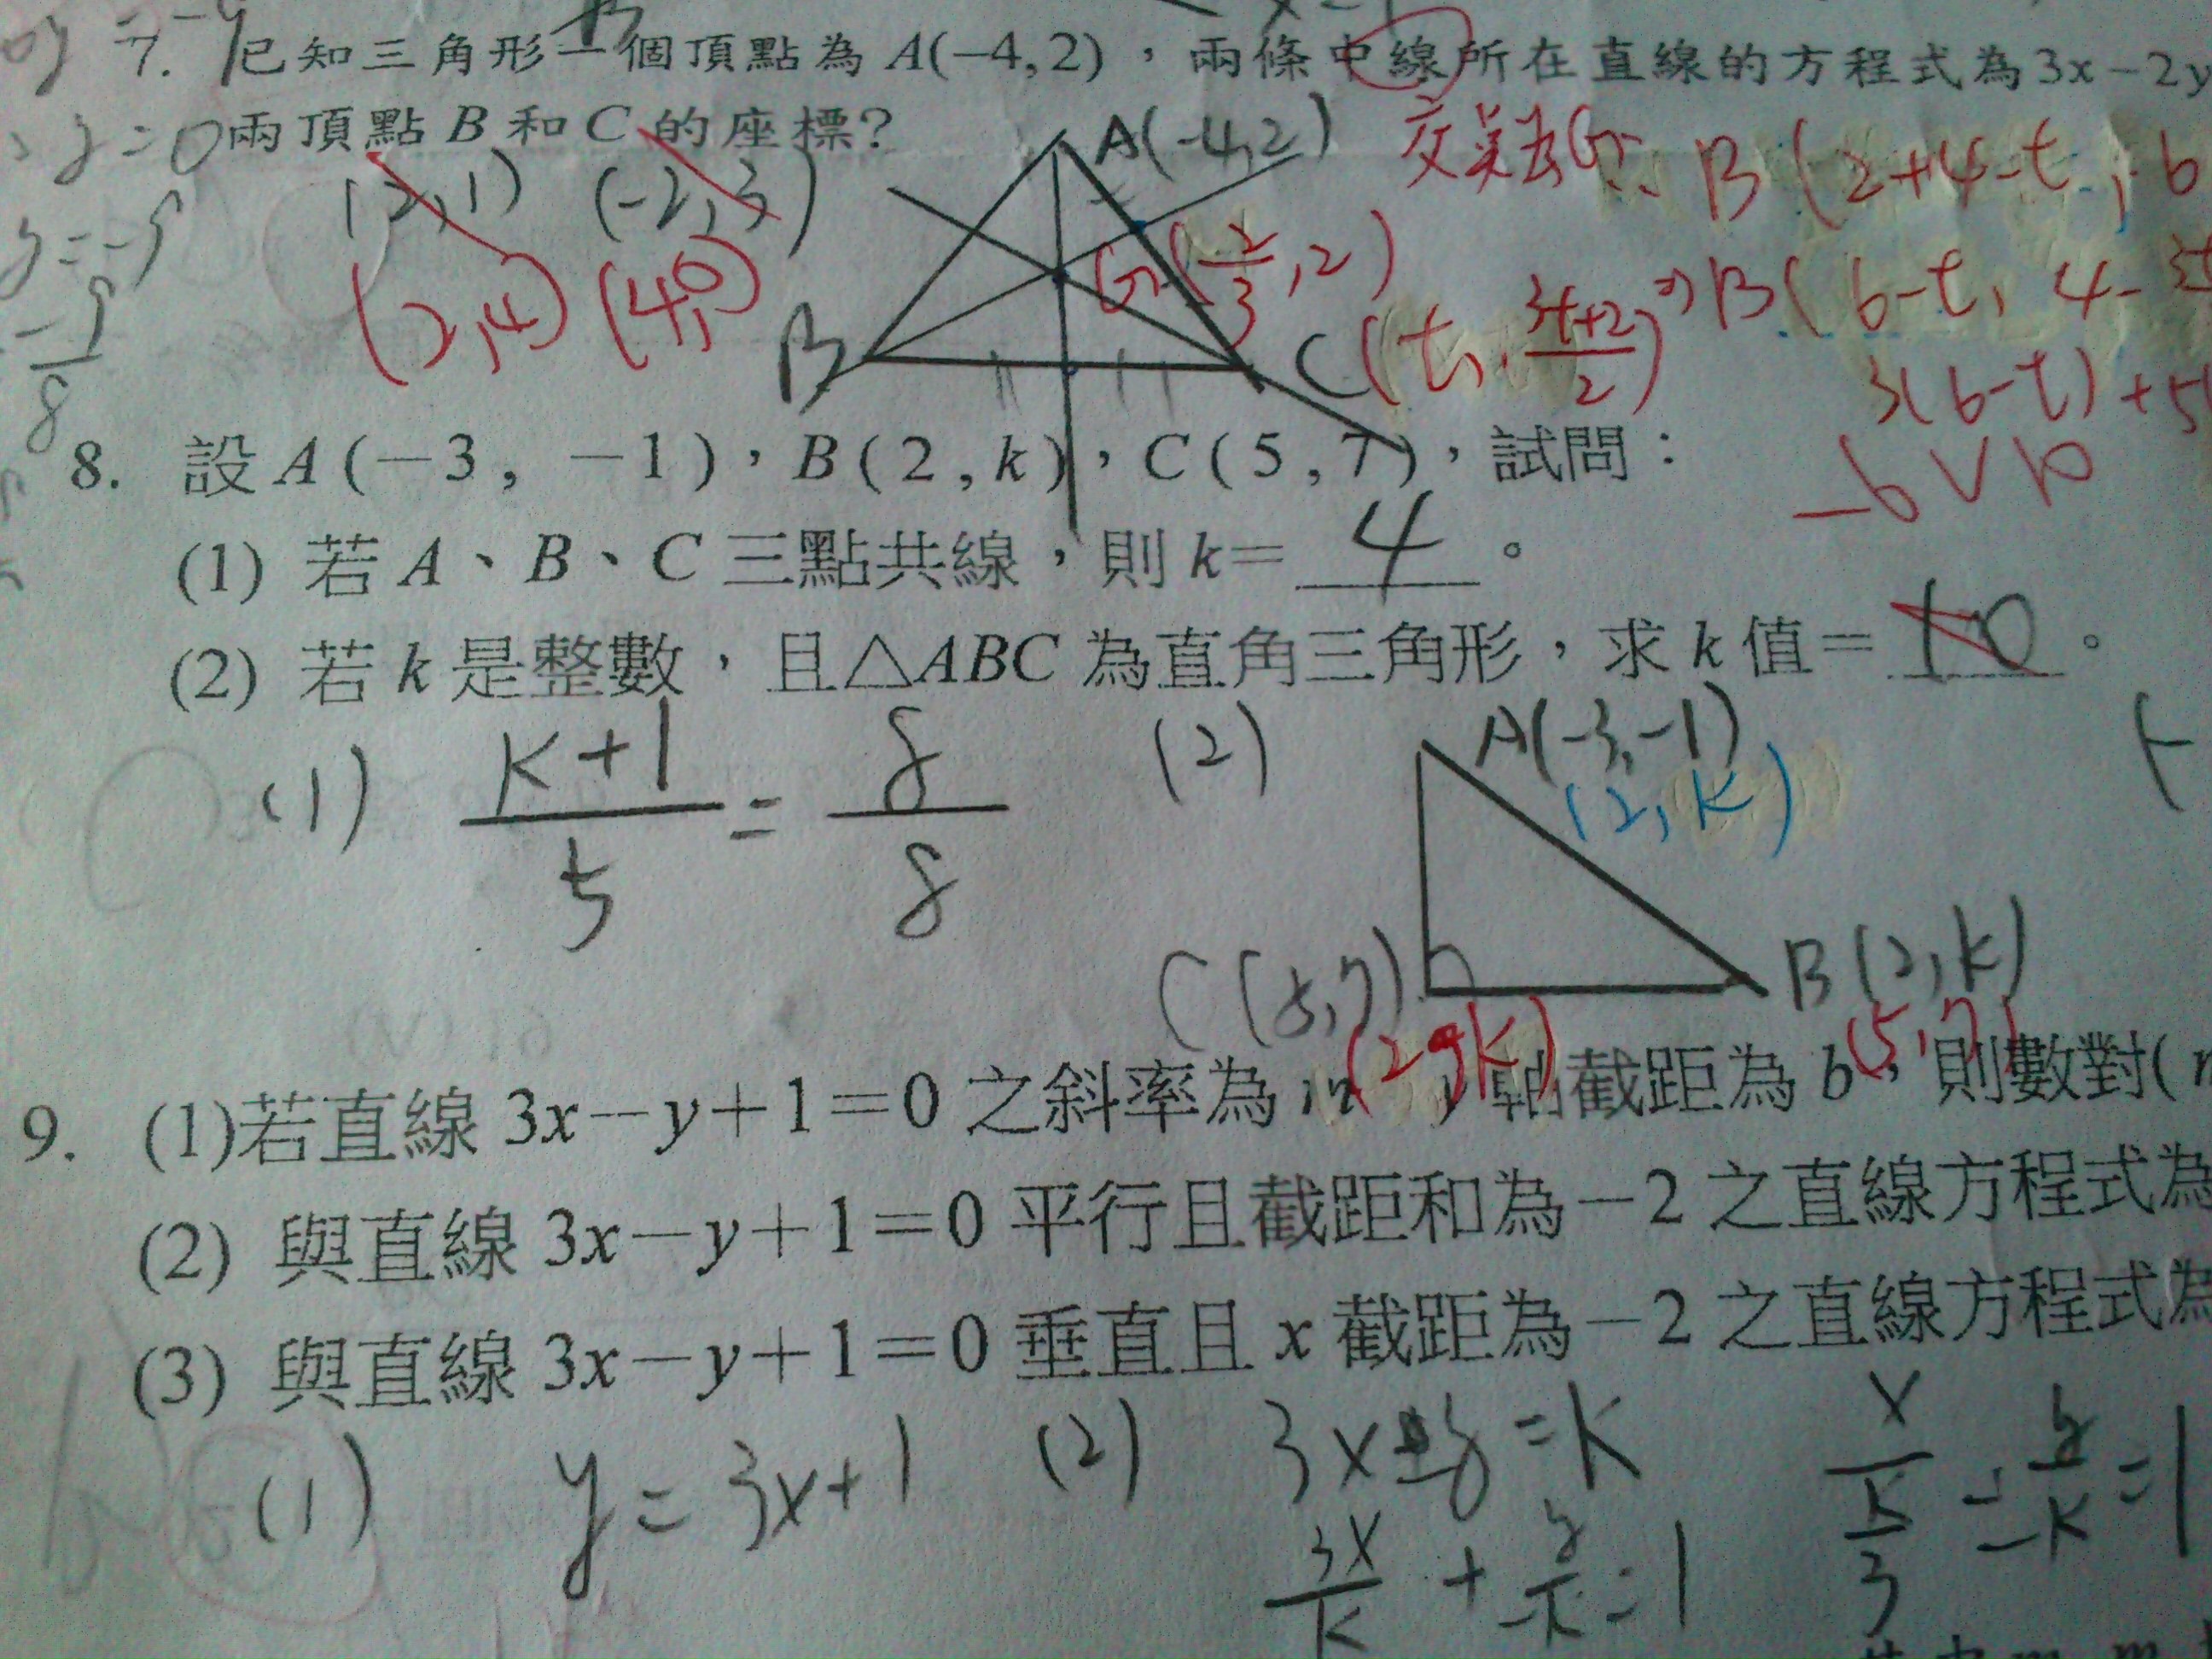 7. 已知三角形一個頂點為 A(−4,2)，兩條中線所在直線的方程式為3x−2y
兩頂點 B 和 C 的座標？
y=0
(2,1) (-2,3)
(2,4) (4,0)
A(-4,2)
B
G(2/3,2)
C(t, (3t+2)/2)
B(2+4-t, 6
⇒B(6-t, 4-
3(6-t)+5
-6∨10
8. 設 A(−3, −1)，B(2, k)，C(5,7)，試問：
(1) 若 A、B、C 三點共線，則 k= 4 。
(2) 若 k 是整數，且△ABC 為直角三角形，求 k 值= 10 。
(1) (k+1)/5 = 8/8
(2)
A(-3,-1)
(2,k)
C(5,7)
B(2,k)
(2,k)
(5,7)
9. (1)若直線 3x−y+1=0 之斜率為 軸截距為 b，則數對(
(2) 與直線 3x−y+1=0 平行且截距和為−2 之直線方程式為
(3) 與直線 3x−y+1=0 垂直且 x 截距為−2 之直線方程式為
(1) y=3x+1 (2) 3x-y=k
3x/k + y/-k = 1